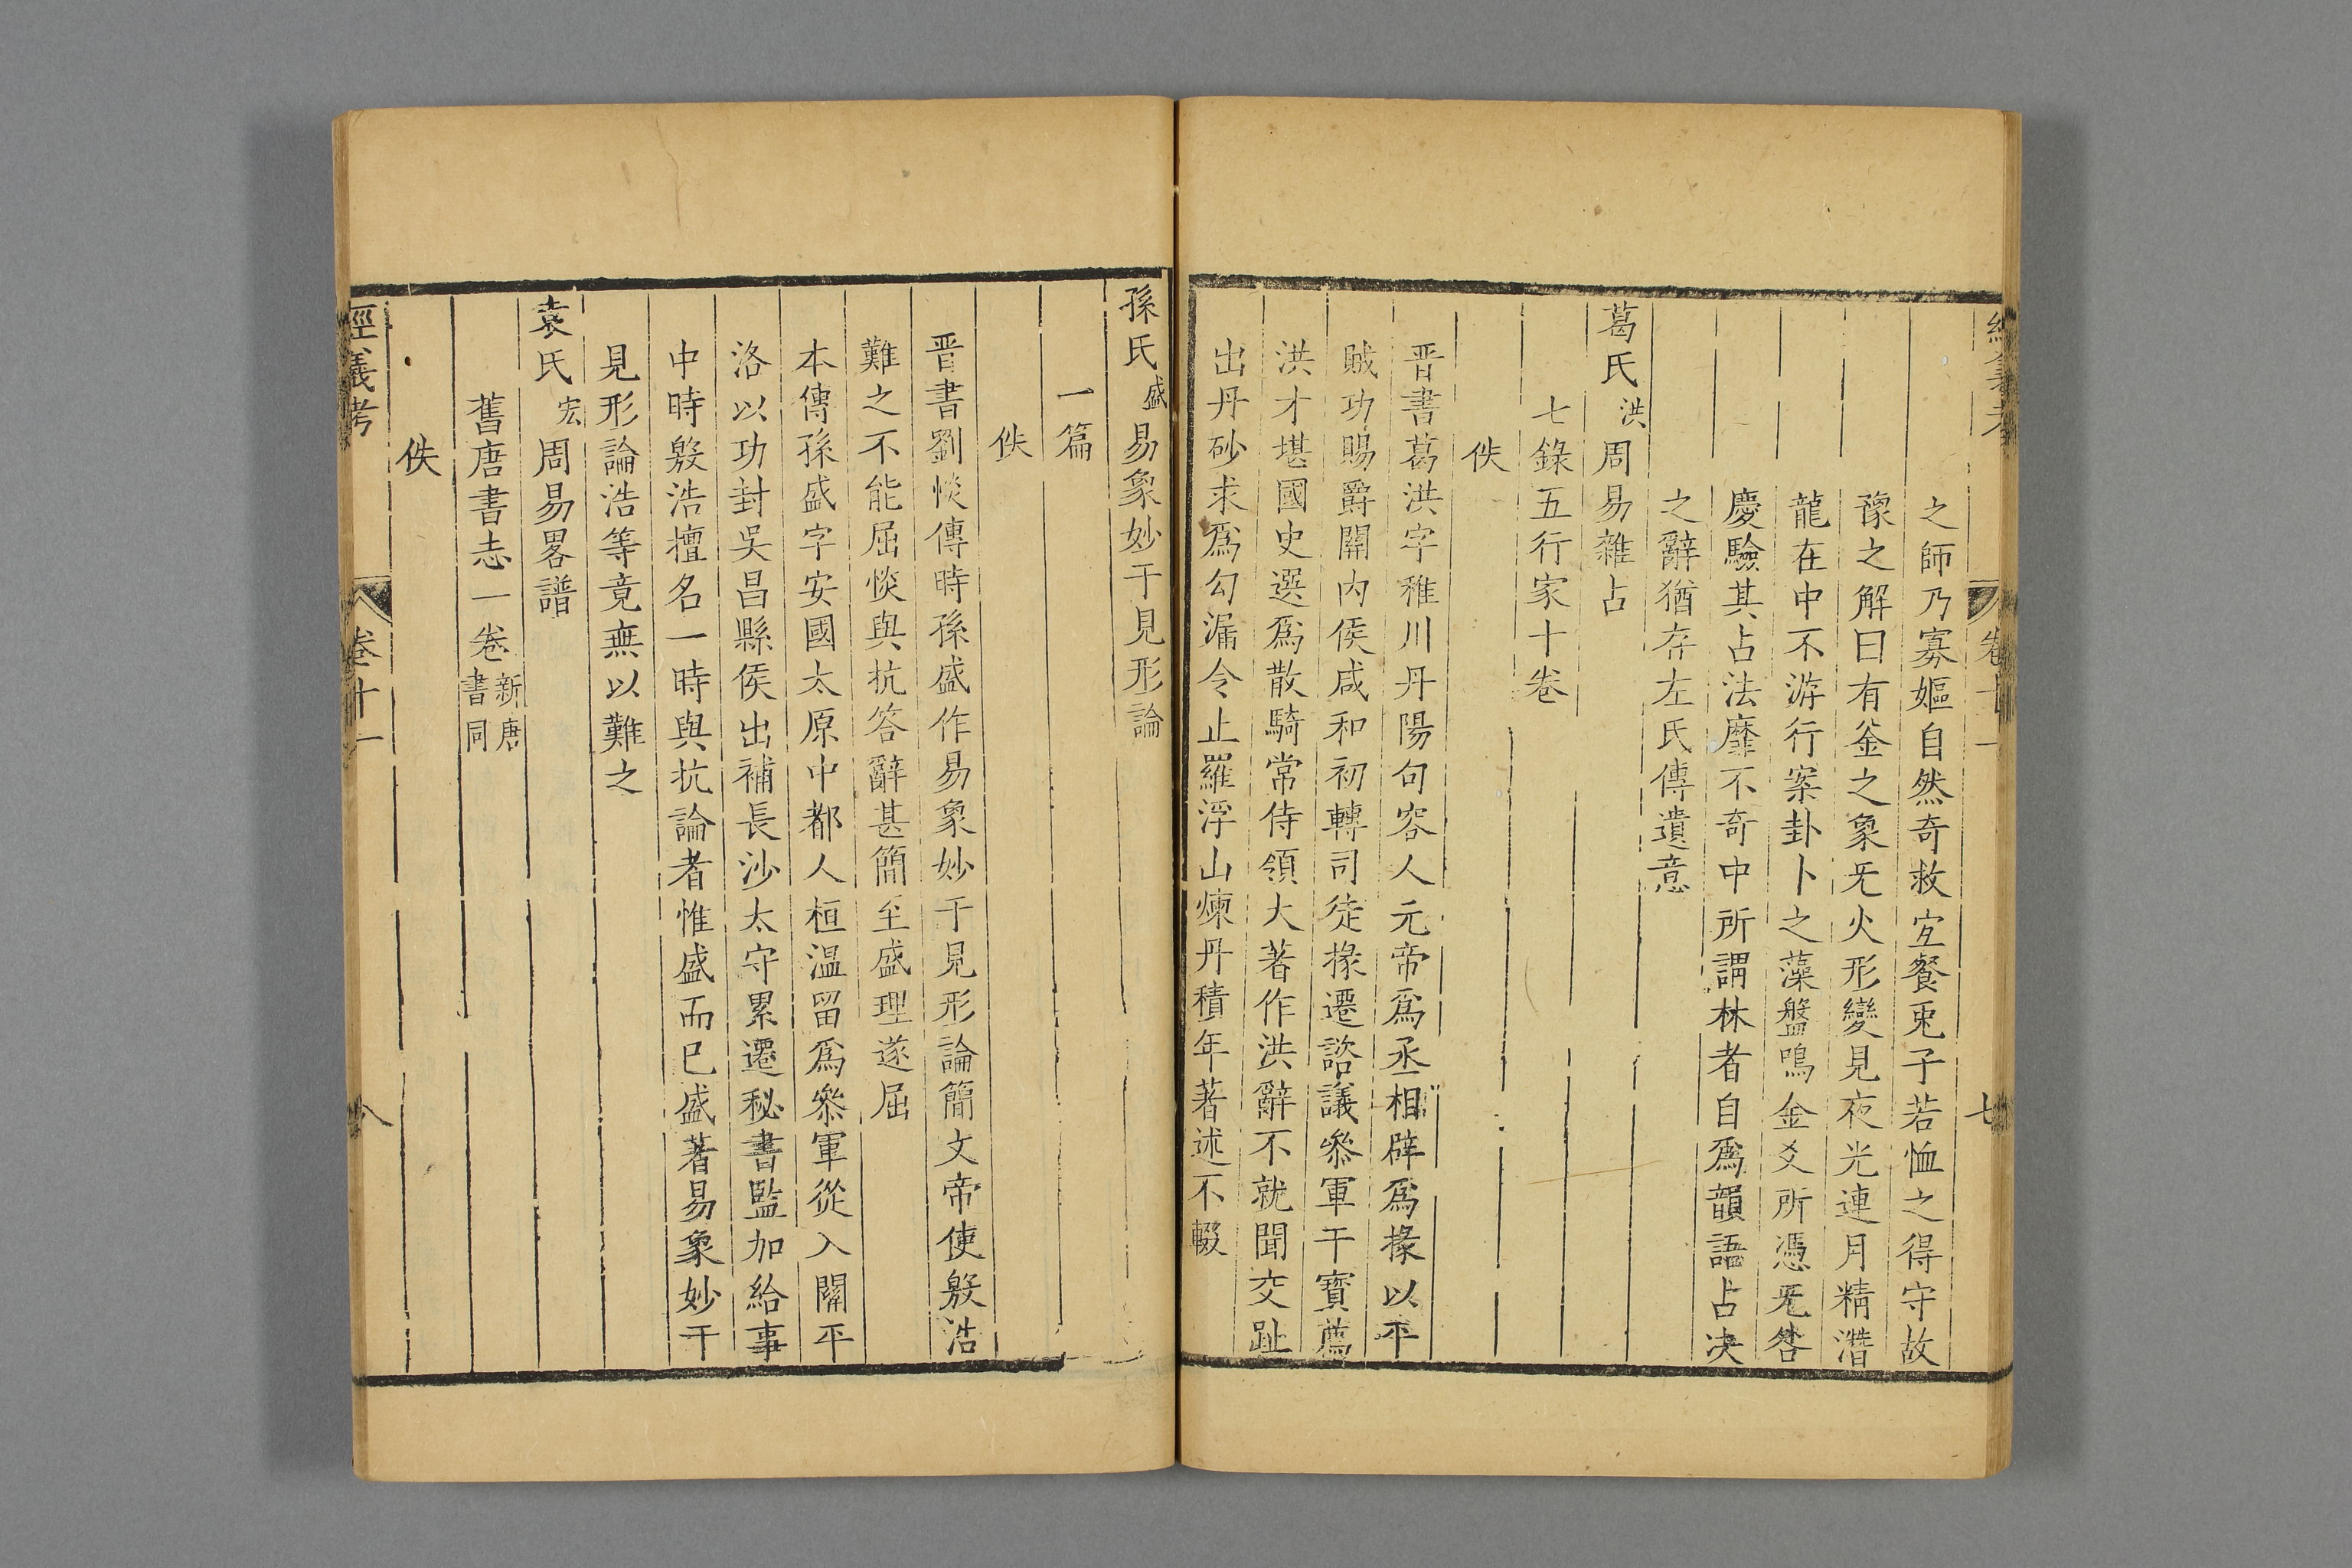 經義考 卷十一 七
之師乃寡嫗自然奇救宐餐兎子若恤之得守故
豫之解曰有釜之象旡火形變見夜光連月精潛
龍在中不游行案卦卜之藻盤鳴金爻所憑旡咎
慶驗其占法靡不奇中所謂林者自爲韻語占决
之辭猶存左氏傳遺意
葛氏洪周易雜占
七錄五行家十卷
佚
晋書葛洪字稚川丹陽句容人元帝爲丞相辟爲掾以平
賊功賜爵關内侯咸和初轉司徒掾遷諮議參軍干寳薦
洪才堪國史選爲散騎常侍領大著作洪辭不就聞交趾
出丹砂求爲勾漏令止羅浮山煉丹積年著述不輟
孫氏盛易象妙于見形論
一篇
佚
晋書劉惔傳時孫盛作易象妙于見形論簡文帝使殷浩
難之不能屈惔與抗答辭甚簡至盛理遂屈
本傳孫盛字安國太原中都人桓温留爲參軍從入關平
洛以功封吳昌縣侯出補長沙太守累遷秘書監加給事
中時殷浩擅名一時與抗論者惟盛而已盛著易象妙于
見形論浩等竟無以難之
袁氏宏周易畧譜
舊唐書志一卷新唐書同
佚
經義考 卷十一 八